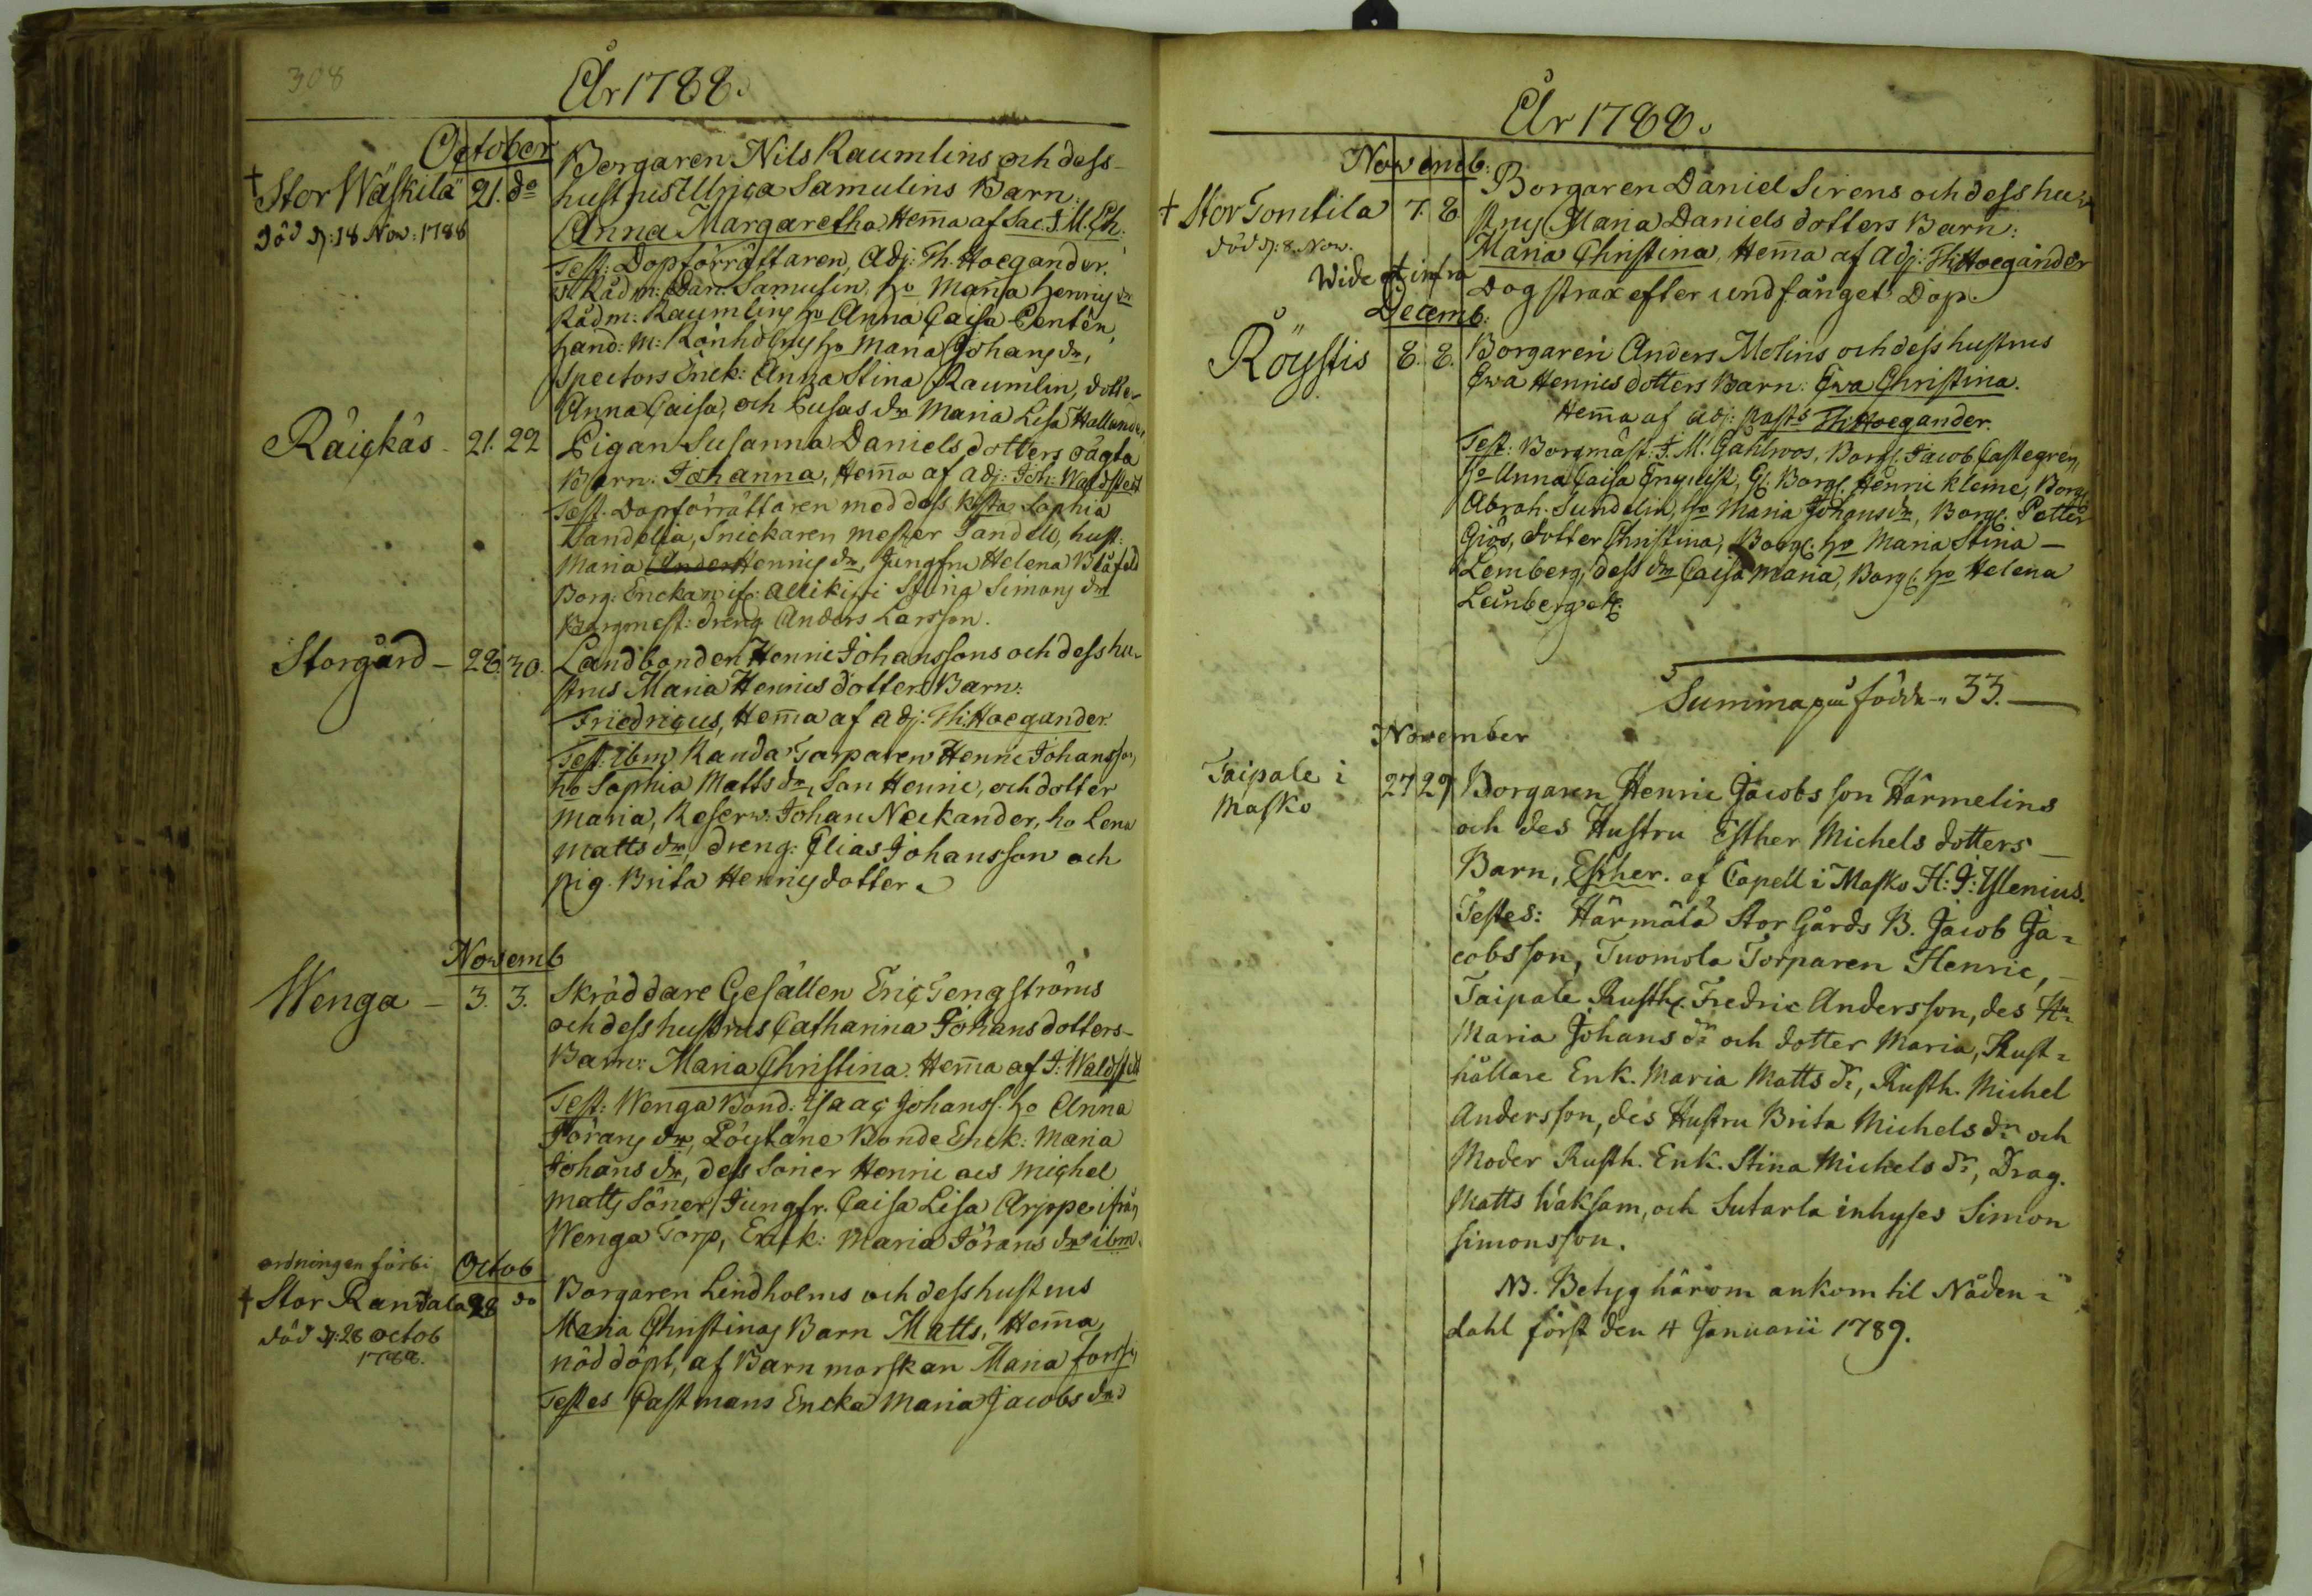 308
År 1788.
October
† Stor Wäskilä 21. do
död d: 18 Nov: 1788
Borgaren Nils Raumlins och dess
hustrus Ulrica Samulins Barn:
Anna Margaretha, Hem̅a af Sac:
Test: Dopförrättaren, Adj: Th. Hoegander.
Rådm: Dan: Samulin, ho Maria Henrics dr
Rådm: Raumlins ho Anna Caisa Pentén,
Hand: M: Rönholms ho Maria Johans dr,
Spectors Enck: Anna Stina Raumlin, dotter
Anna Caisa, och dr Maria Lisa
Räickäs - 21. 22
Pigan Susanna Daniels dotters oägta
Barn: Johanna, Hem̅a af Adj: Joh: Waldstedt
Test. Dopförrättaren med dess Kjsta Sophia
Sandelia, Snickaren mester Sandell, hust:
Maria Henrics dr, Jungfru Helena Blåfeld
Borg: Enckan Stina Simons dr
Borgmest: dreng Anders Larsson.
Storgård - 28. 30.
Landbonden Henric Johanssons och dess hu-
strus Maria Henrics dotters Barn:
Friedricus, Hem̅a af Adj: Th: Hoegander.
Test: ibm Randa Torparen Henric Johansson,
ho Sophia Matts dr, Son Henric, och dotter
Maria, Reserv: Johan Neckander, ho Lena
Matts dr, dreng: Elias Johansson och
pig. Brita Henrics dotter.
Novemb
Wenga - 3. 3.
Skräddare Gesällen Eric Tengströms
och dess hustrus Catharina Johans dotters -
Barn: Maria Christina. Hem̅a af J: Waldstedt
Test: Wenga Bond: Isaac Johanss. ho Anna
Jörans dr, Löytäne Bonde Enck: Maria
Johans dr, dess Söner Henric acs Michel
Matts Söner, Jungfr. Caisa Lisa Arppe ifrån
Wenga Torp, Enck: Maria Jörans dr ibm.
ordningen förbi Octob
† Stor Randala 28 do
död d: 28 octob
1788.
Borgaren Lindholms och dess hustrus
Maria Christinas Barn Matts, Hem̅a
nöddöpt, af Barn morskan Maria
Testes Gastmans Encka Maria Jacobs dr
År 1788.
Novemb:
† Stor Tomtila 7. 8
död d: 8. Nov.
Borgaren Daniel Sirens och dess hu-
strus Maria Daniels dotters Barn:
Maria Christina, Hem̅a af Adj: Th: Hoegander
Dog strax efter undfånget Dop.
Wide infra
Decemb:
Röystis 8. 8.
Borgaren Anders Molins och dess hustrus
Ewa Henrics dotters Barn: Ewa Christina.
Hem̅a af Adj: Past: Th: Hoegander.
Test: Borgmäst: J. M: Gahlroos, Borg: Jacob Castegren,
ho Anna Caisa Engelist, Gl: Borg: Henric Kleme, Borg:
Abrah. Sundelin, ho Maria Johans dr, Borg: Petter
Giös, dotter Christina, Borg: ho Maria Stina -
Lemberg, dess dr Caisa Maria, Borg: ho Helena
Leinberg etc.
Summa på födde - 33. -
November
Taipale i 27 29
Masko
Borgaren Henric Jacobs son Härmelins
och des Hustru Esther Michels dotters -
Barn, Esther. af Capell i Masko H: J: Ylenius.
Testes: Härmälä Stor Gårds B. Jacob Ja=
cobs son, Tuomola Torparen Henric, -
Taipale Rusth. Fredric Andersson, des Hu=
Maria Johans dr och dotter Maria, Rust=
hållare Enk. Maria Matts dr, Rusth. Michel
Andersson, des Hustru Brita Michels dr och
Moder Rusth. Enk. Stina Michels dr, Drag.
Matts Waksam, och Sutarla inhyses Simon
Simonsson.
NB. Betyg härom ankom til Nåden=
dahl först den 4 Januarii 1789.